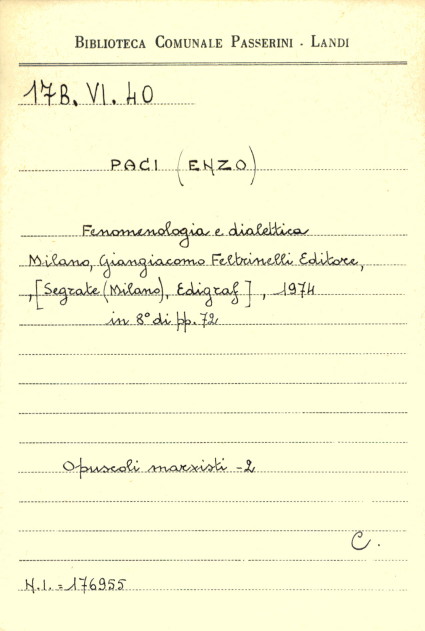 BIBLIOTECA COMUNALE PASSERINI - LANDI
17B. VI. 40
PACI (ENZO)
Fenomenologia e dialettica
Milano, Giangiacomo Feltrinelli Editore,
,[Segrate (Milano), Edigraf] , 1974
in 8° di pp. 72
Opuscoli marxisti - 2
C.
N.I. = 176955